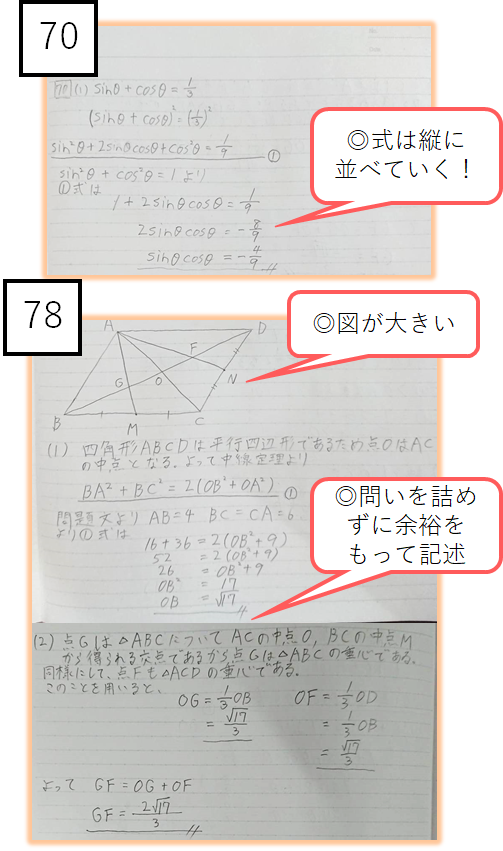 70
[70] (1) sinθ + cosθ = 1/3
(sinθ + cosθ)² = (1/3)²
sin²θ + 2sinθcosθ + cos²θ = 1/9 ①
sin²θ + cos²θ = 1 より
①式は
1 + 2sinθcosθ = 1/9
2sinθcosθ = -8/9
sinθcosθ = -4/9
◎式は縦に
並べていく！
78
A
D
F
G
O
N
B
M
C
◎図が大きい
(1) 四角形ABCDは平行四辺形であるため点OはAC
の中点となる. よって中線定理より
BA² + BC² = 2(OB² + OA²) ①
問題文より AB=4 BC=CA=6
より①式は
16 + 36 = 2(OB² + 9)
52 = 2(OB² + 9)
26 = OB² + 9
OB² = 17
OB = √17
◎問いを詰め
ずに余裕を
もって記述
(2) 点Gは△ABCについて ACの中点O, BCの中点M
から得られる交点であるから点Gは△ABCの重心である.
同様にして, 点Fも△ACDの重心である.
このことを用いると、
OG = 1/3 OB
= √17/3
OF = 1/3 OD
= 1/3 OB
= √17/3
よって GF = OG + OF
GF = 2√17/3